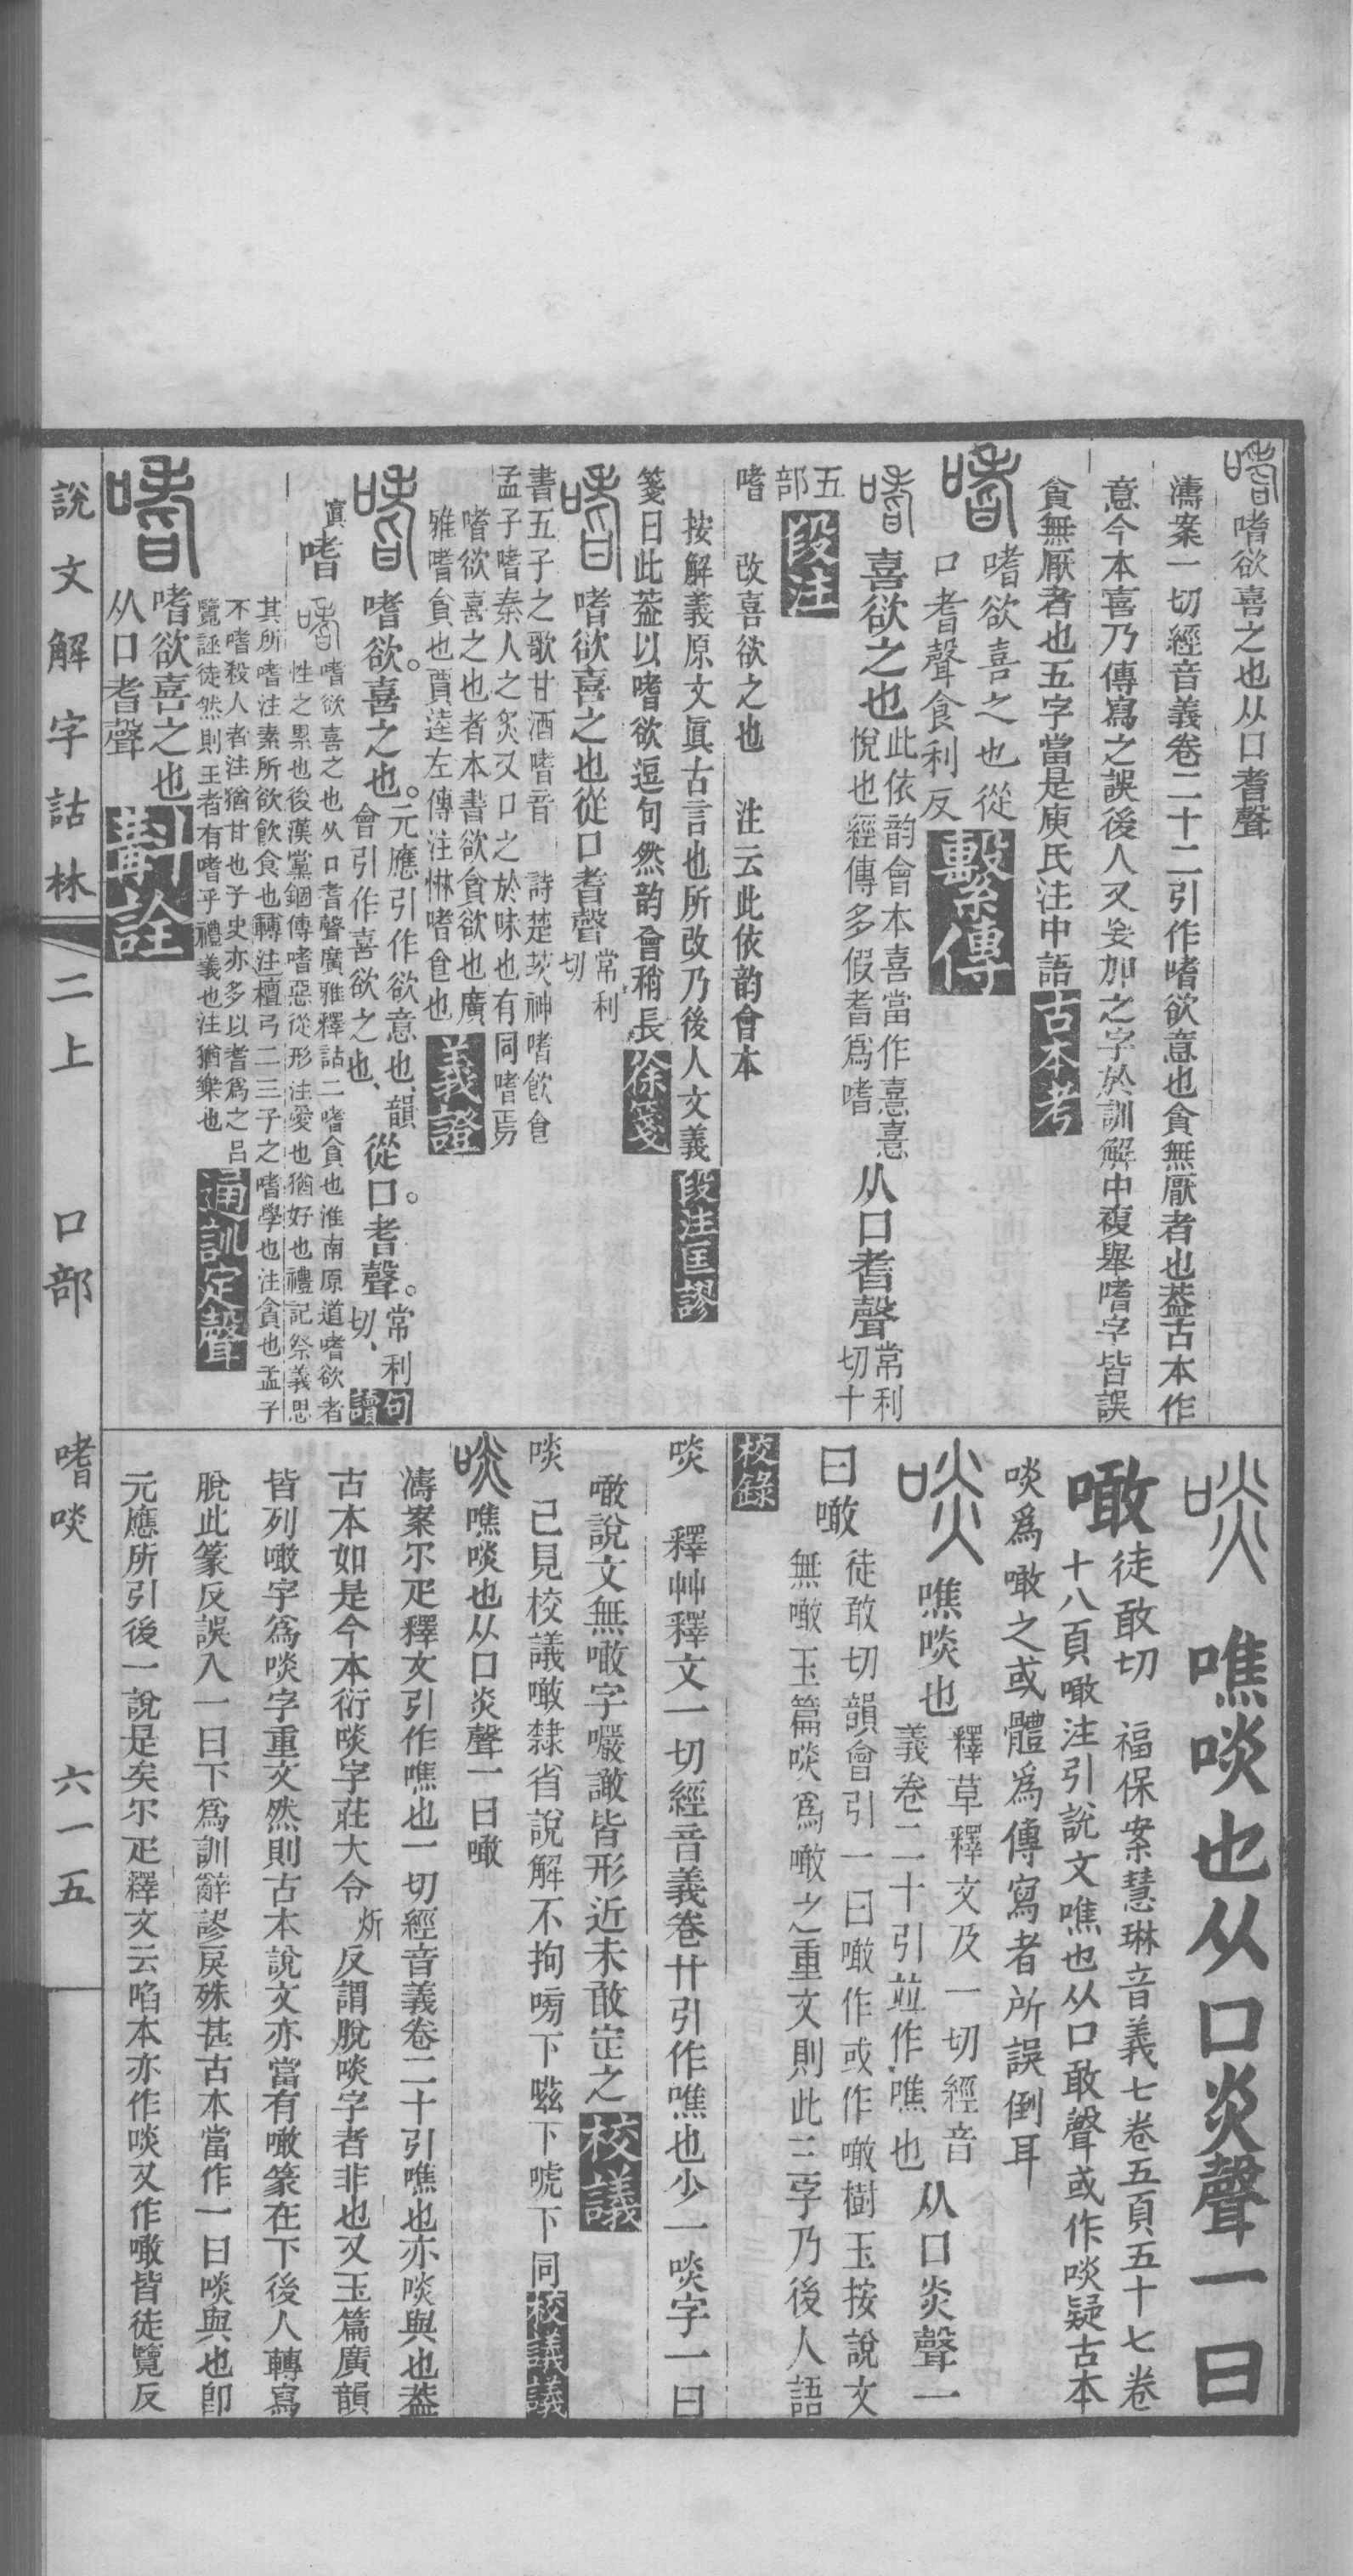 嗜嗜欲喜之也从口耆聲
濤案一切經音義卷二十二引作嗜欲意也貪無厭者也葢古本作
意今本喜乃傳寫之誤後人又妄加之字於訓解中複舉嗜字皆誤
貪無厭者也五字當是庾氏注中語古本考
嗜嗜欲喜之也從
口耆聲食利反繫傳
嗜喜欲之也此依韵會本喜當作憙憙
悅也經傳多假耆爲嗜从口耆聲常利
切十
五部段注
嗜 改喜欲之也 注云此依韵會本
按解義原文眞古言也所改乃後人文義段注匡謬
箋曰此葢以嗜欲逗句然韵會稍長徐箋
嗜嗜欲喜之也從口耆聲常利
切
書五子之歌甘酒嗜音 詩楚茨神嗜飲食
孟子嗜秦人之炙又口之於味也有同嗜焉
嗜欲喜之也者本書欲貪欲也廣
雅嗜貪也賈逵左傳注惏嗜食也義證
嗜嗜欲。喜之也。元應引作欲意也、韻
會引作喜欲之也、從口。耆聲。常利
切、句讀
嗜嗜欲喜之也从口耆聲廣雅釋詁二嗜貪也淮南原道嗜欲者
性之累也後漢黨錮傳嗜惡從形注愛也猶好也禮記祭義思
其所嗜注素所欲飲食也轉注檀弓二三子之嗜學也注貪也孟子
不嗜殺人者注猶甘也子史亦多以耆爲之呂
覽誣徒然則王者有嗜乎禮義也注猶樂也通訓定聲
嗜嗜欲喜之也
从口耆聲斠詮
啖 噍啖也从口炎聲一曰
噉徒敢切 福保案慧琳音義七卷五頁五十七卷
十八頁噉注引說文噍也从口敢聲或作啖疑古本
啖爲噉之或體爲傳寫者所誤倒耳
啖噍啖也釋草釋文及一切經音
義卷二十引竝作噍也从口炎聲一
曰噉徒敢切韻會引一曰噉作或作噉樹玉按說文
無噉玉篇啖爲噉之重文則此三字乃後人語
校錄
啖 釋艸釋文一切經音義卷廿引作噍也少一啖字一曰
噉說文無噉字嚴譀皆形近未敢定之校議
啖 已見校議噉隸省說解不拘嗙下嗞下唬下同校議議
啖噍啖也从口炎聲一曰噉
濤案尔疋釋文引作噍也一切經音義卷二十引噍也亦啖與也葢
古本如是今本衍啖字莊大令炘反謂脫啖字者非也又玉篇廣韻
皆列噉字爲啖字重文然則古本說文亦當有噉篆在下後人轉寫
脫此篆反誤入一曰下爲訓辭謬戾殊甚古本當作一曰啖與也卽
元應所引後一說是矣尔疋釋文云啗本亦作啖又作噉皆徒覽反
說文解字詁林 二上 口部 嗜啖 六一五